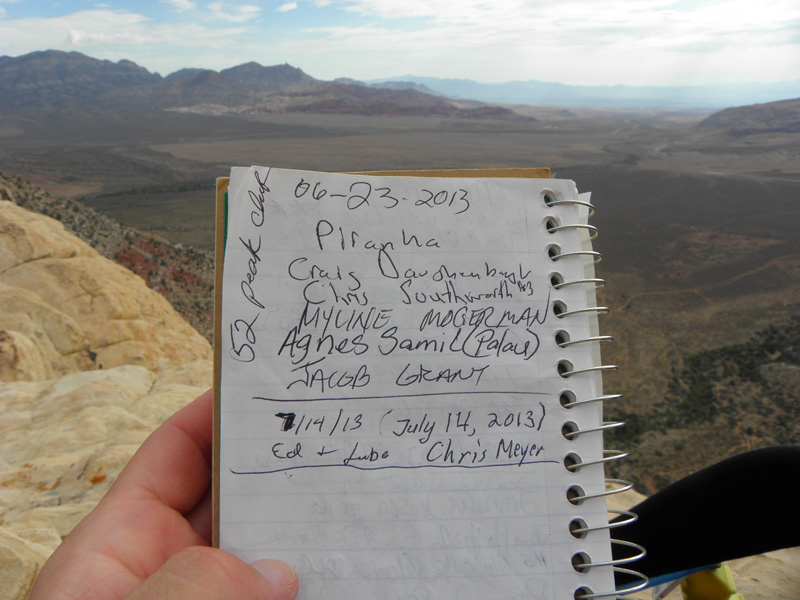 52 peak club
06-23-2013
Piranha
Craig Daughenbaugh
Chris Southworth #3
MYLINE MOGERMAN
Agnes Samil (Palau)
JACOB GRANT
7/14/13 (July 14, 2013)
Ed + Luba Chris Meyer